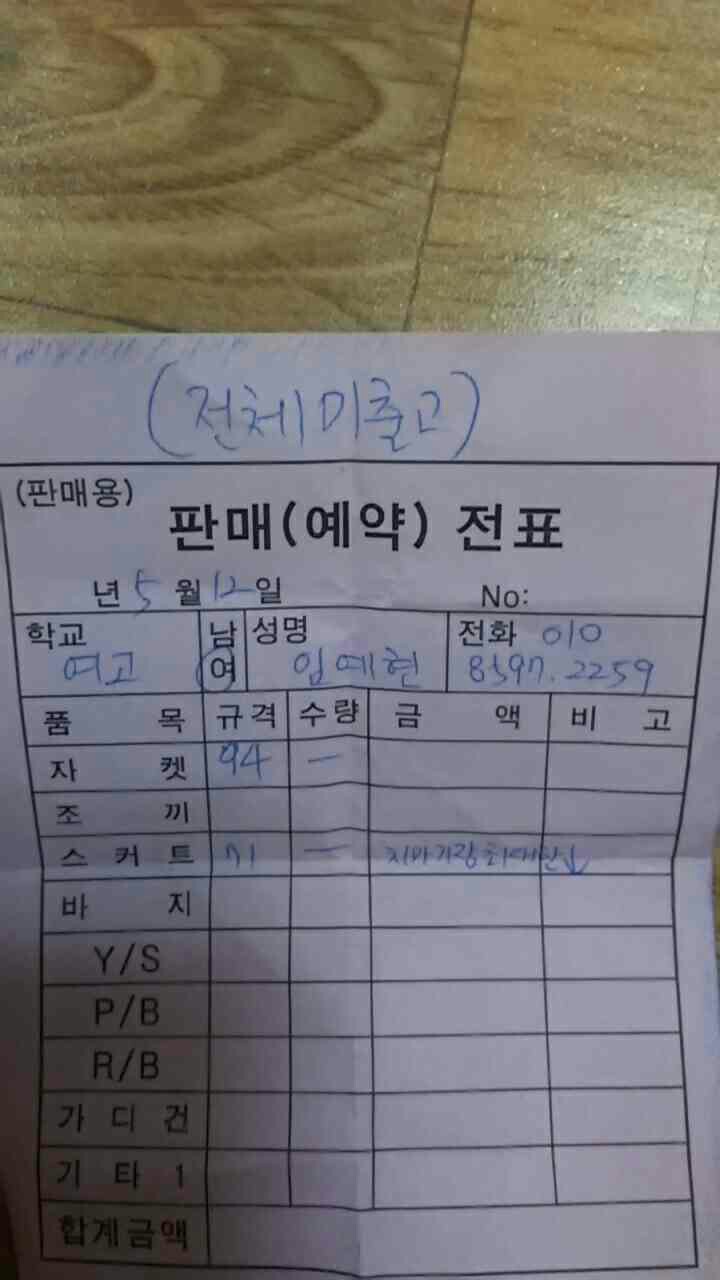 (전체미출고)
(판매용)
판매(예약) 전표
년 5 월 12 일 No:
학교 여고 남 여 성명 임예현 전화 010
8597.2259
품 목 규격 수량 금 액 비 고
자 켓 94 一
조 끼
스 커 트 71 一 치마기장최대한↓
바 지
Y/S
P/B
R/B
가 디 건
기 타 1
합계금액